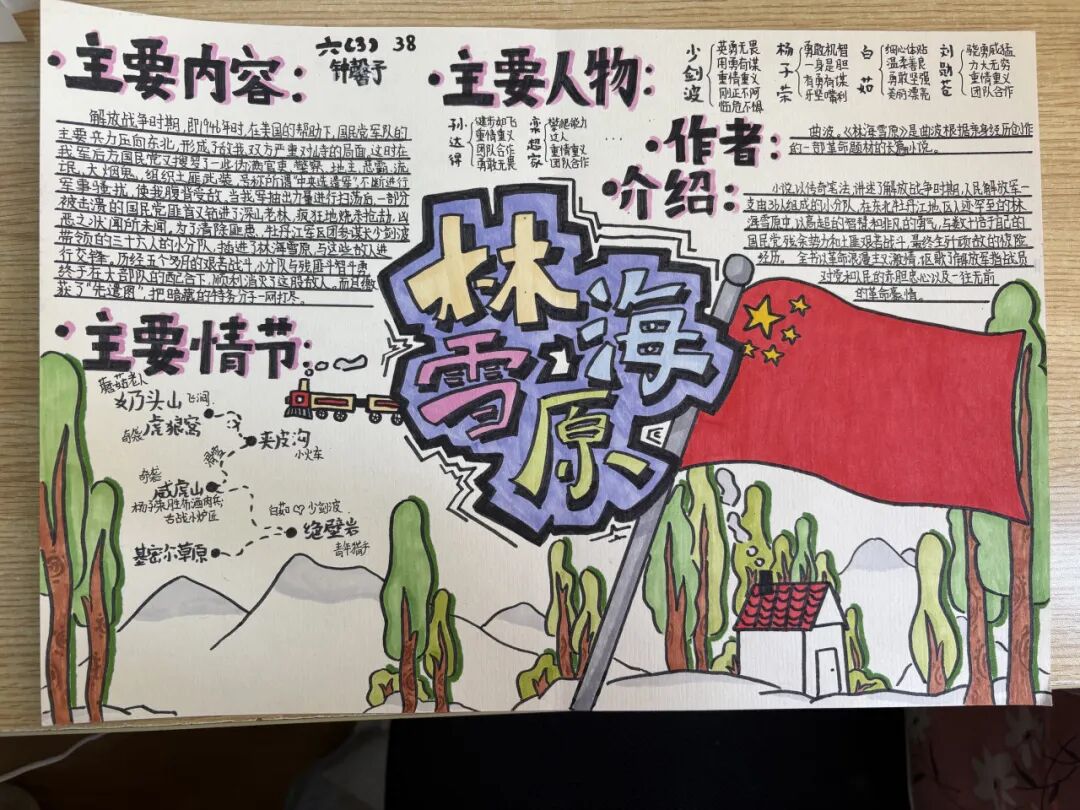 主要内容:
六(3) 38
钟馨予
解放战争时期,即1946年时,在美国的帮助下,国民党军队的
主要兵力压向东北,形成了敌我双方严重对峙的局面,这时在
我军后方国民党又搜罗了一些伪满官吏、警察、地主、恶霸、流
氓、大烟鬼,组织土匪武装,号称所谓“中央先遣军”,不断进行
军事骚扰,使我腹背受敌,当我军抽出力量进行扫荡后,一部分
被击溃的国民党匪首又钻进了深山老林,疯狂地烧杀抢劫,凶
恶之状闻所未闻,为了清除匪患,牡丹江军区团参谋长少剑波
带领的三十六人的小分队,插进了林海雪原,与这些敌人进
行交锋,历经五个多月的艰苦战斗,小分队与残匪斗智斗勇
终于在大部队的配合下,顺利消灭了这股敌人。而且缴
获了“先遣图”,把暗藏的特务分子一网打尽。
主要人物:
少剑波
英勇无畏
用勇有谋
重情重义
刚正不阿
临危不惧
杨子荣
勇敢机智
一身是胆
有勇有谋
牙坚嘴利
白茹
细心体贴
温柔善良
勇敢坚强
美丽漂亮
刘勋苍
骁勇威猛
力大无穷
重情重义
团队合作
孙达得
健步如飞
重情重义
团队合作
勇敢无畏
栾超家
攀爬能力
过人
重情重义
团队合作
......
作者:
曲波,《林海雪原》是曲波根据亲身经历创作
的一部革命题材的长篇小说。
介绍:
小说以传奇笔法,讲述了解放战争时期,人民解放军一
支由36人组成的小分队,在东北牡丹江地区人迹罕至的林
海雪原中,以高超的智慧和非凡的勇气,与数十倍于自己的
国民党残余势力和土匪艰苦战斗,最终歼灭顽敌的惊险
经历。全书以革命浪漫主义激情,讴歌了解放军指战员
对党和人民的赤胆忠心以及一往无前
的革命豪情。
林海
雪原
主要情节:
蘑菇老人
奶头山 飞涧
奇袭
虎狼窝
夹皮沟
小火车
奇袭
威虎山
杨子荣胜布酒肉兵
舌战小炉匠
白茹♡少剑波
绝壁岩
青年猎手
基密尔草原